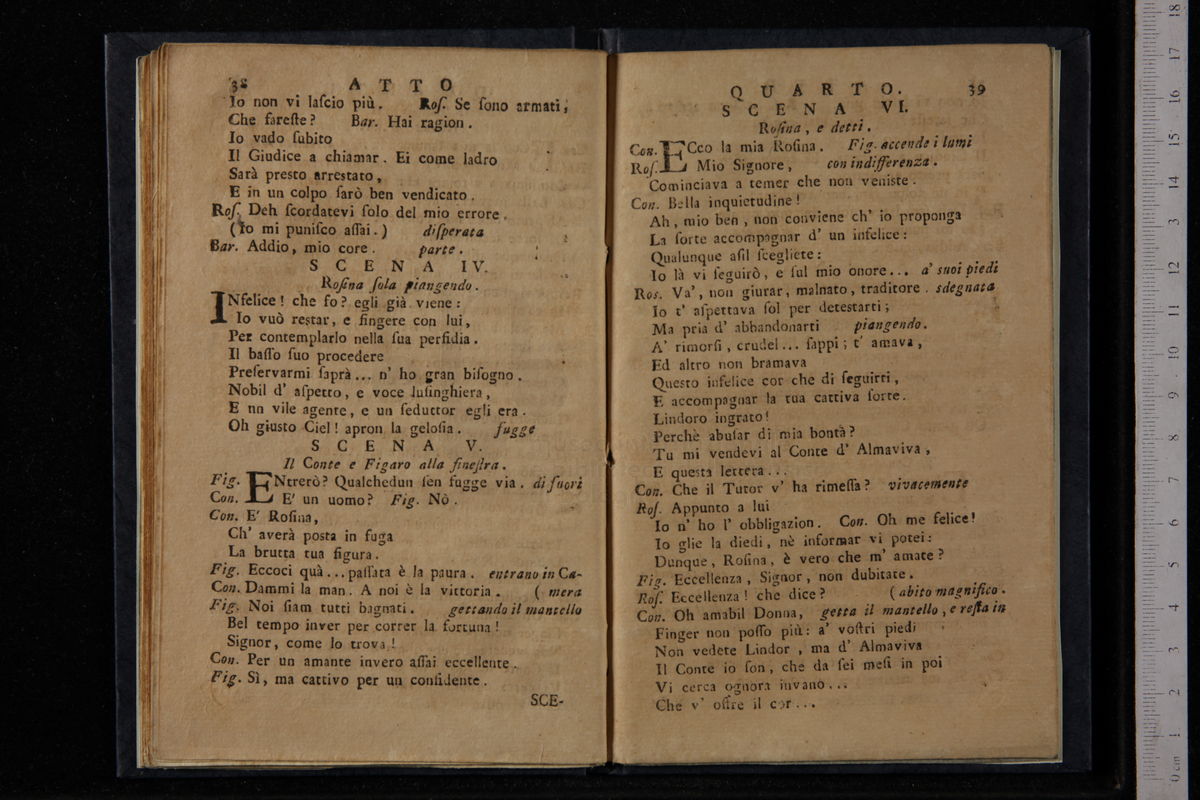 38 ATTO
Io non vi laſcio più. Roſ. Se ſono armati,
Che fareſte? Bar. Hai ragion.
Io vado ſubito
Il Giudice a chiamar. Ei come ladro
Sarà presto arrestato,
E in un colpo ſarò ben vendicato.
Roſ. Deh ſcordatevi ſolo del mio errore.
(Io mi puniſco aſſai.) diſperata
Bar. Addio, mio core. parte.
SCENA IV.
Roſina ſola piangendo.
INfelice! che fo? egli già viene:
Io vuò restar, e fingere con lui,
Per contemplarlo nella ſua perfidia.
Il baſſo ſuo procedere
Preſervarmi ſaprà... n' ho gran biſogno.
Nobil d' aſpetto, e voce luſinghiera,
E un vile agente, e un ſeduttor egli era.
Oh giusto Ciel! apron la geloſia. fugge
SCENA V.
Il Conte e Figaro alla fineſtra.
Fig. ENtrerò? Qualchedun ſen fugge via. di fuori
Con. E' un uomo? Fig. Nò.
Con. E' Roſina,
Ch' averà posta in fuga
La brutta tua figura.
Fig. Eccoci quà... paſſata è la paura. entrano in Ca-
Con. Dammi la man. A noi è la vittoria. (mera
Fig. Noi ſiam tutti bagnati. gettando il mantello
Bel tempo inver per correr la fortuna!
Signor, come lo trova!
Con. Per un amante invero aſſai eccellente.
Fig. Sì, ma cattivo per un conſidente.
SCE-
QUARTO. 39
SCENA VI.
Roſina, e detti.
Con. ECco la mia Roſina. Fig. accende i lumi
Roſ. Mio Signore, con indifferenza.
Cominciava a temer che non veniste.
Con. Bella inquietudine!
Ah, mio ben, non conviene ch' io proponga
La ſorte accompagnar d' un infelice:
Qualunque aſil ſcegliete:
Io là vi ſeguirò, e ſul mio onore... a' ſuoi piedi
Ros. Va', non giurar, malnato, traditore. sdegnata
Io t' aſpettava ſol per detestarti;
Ma pria d' abbandonarti piangendo.
A' rimorſi, crudel... ſappi; t' amava,
Ed altro non bramava
Questo infelice cor che di ſeguirti,
E accompagnar la tua cattiva ſorte.
Lindoro ingrato!
Perchè abuſar di mia bontà?
Tu mi vendevi al Conte d' Almaviva,
E questa lettera...
Con. Che il Tutor v' ha rimeſſa? vivacemente
Roſ. Appunto a lui
Io n' ho l' obbligazion. Con. Oh me felice!
Io glie la diedi, nè informar vi potei:
Dunque, Roſina, è vero che m' amate?
Fig. Eccellenza, Signor, non dubitate.
Roſ. Eccellenza! che dice? (abito magnifico.
Con. Oh amabil Donna, getta il mantello, e reſta in
Finger non poſſo più: a' voſtri piedi
Non vedete Lindor, ma d' Almaviva
Il Conte io ſon, che da ſei meſi in poi
Vi cerca ognora invano...
Che v' offre il cor...
0 cm 1 2 3 4 5 6 7 8 9 10 11 12 13 14 15 16 17 18